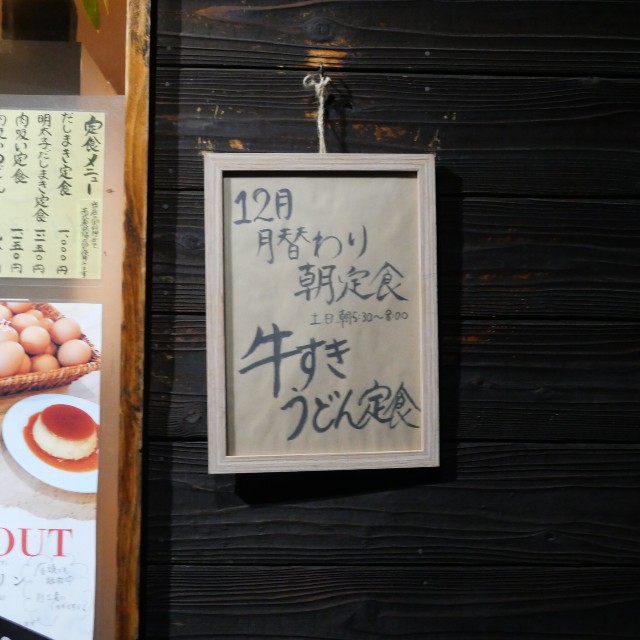 定食メニュー
だしまき定食 1000円
明太子だしまき定食 1150円
肉吸い定食 1150円
12月
月替わり
朝定食
土日朝5:30〜8:00
牛すき
うどん定食
OUT
リン